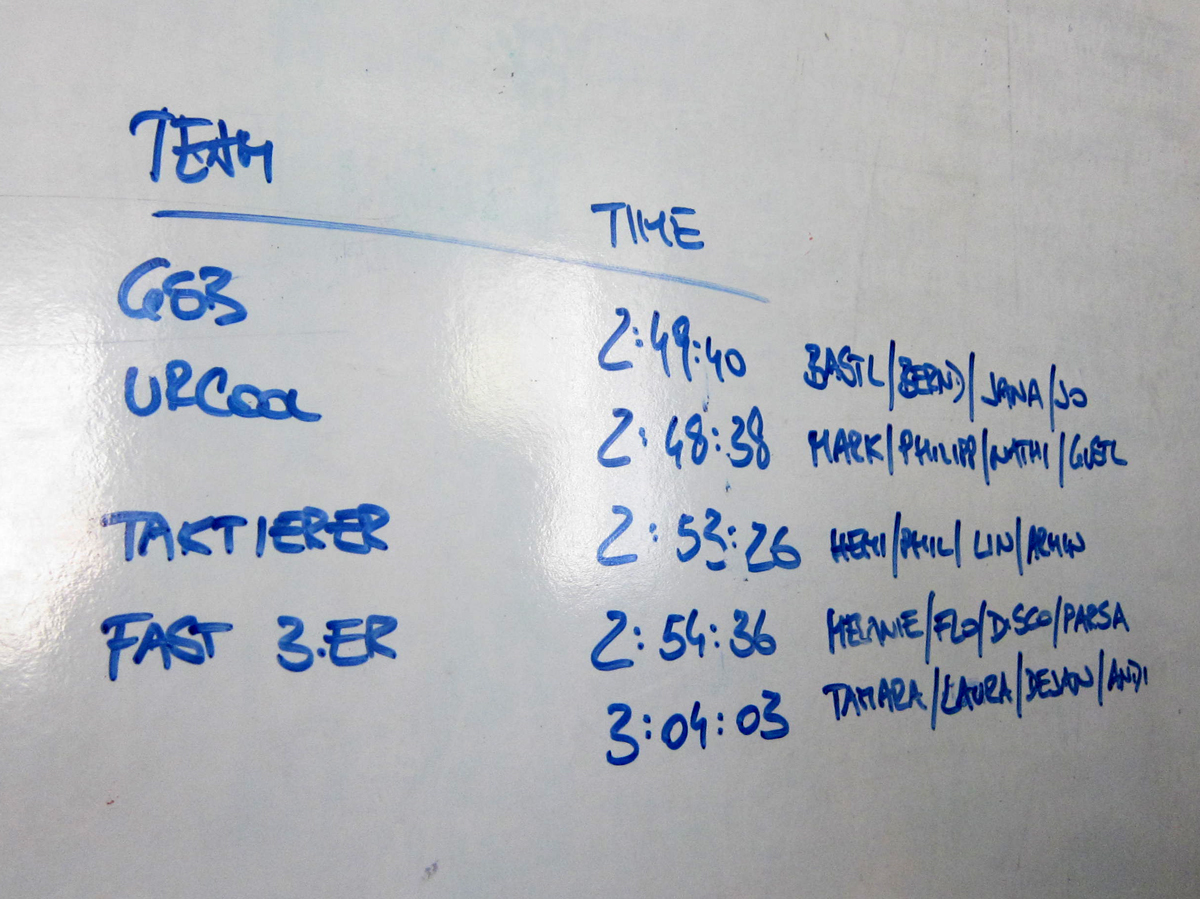 TEAM
TIME
GEB 2:49:40 BASTL/BERND/JANA/JO
URCOOL 2:48:38 MARK/PHILIPP/NATHI/GUSTL
TAKTIERER 2:53:26 HEMI/PHIL/LIN/ARMIN
FAST 3.ER 2:54:36 MELANIE/FLO/DISCO/PARSA
3:04:03 TAMARA/LAURA/DEJAN/ANDI